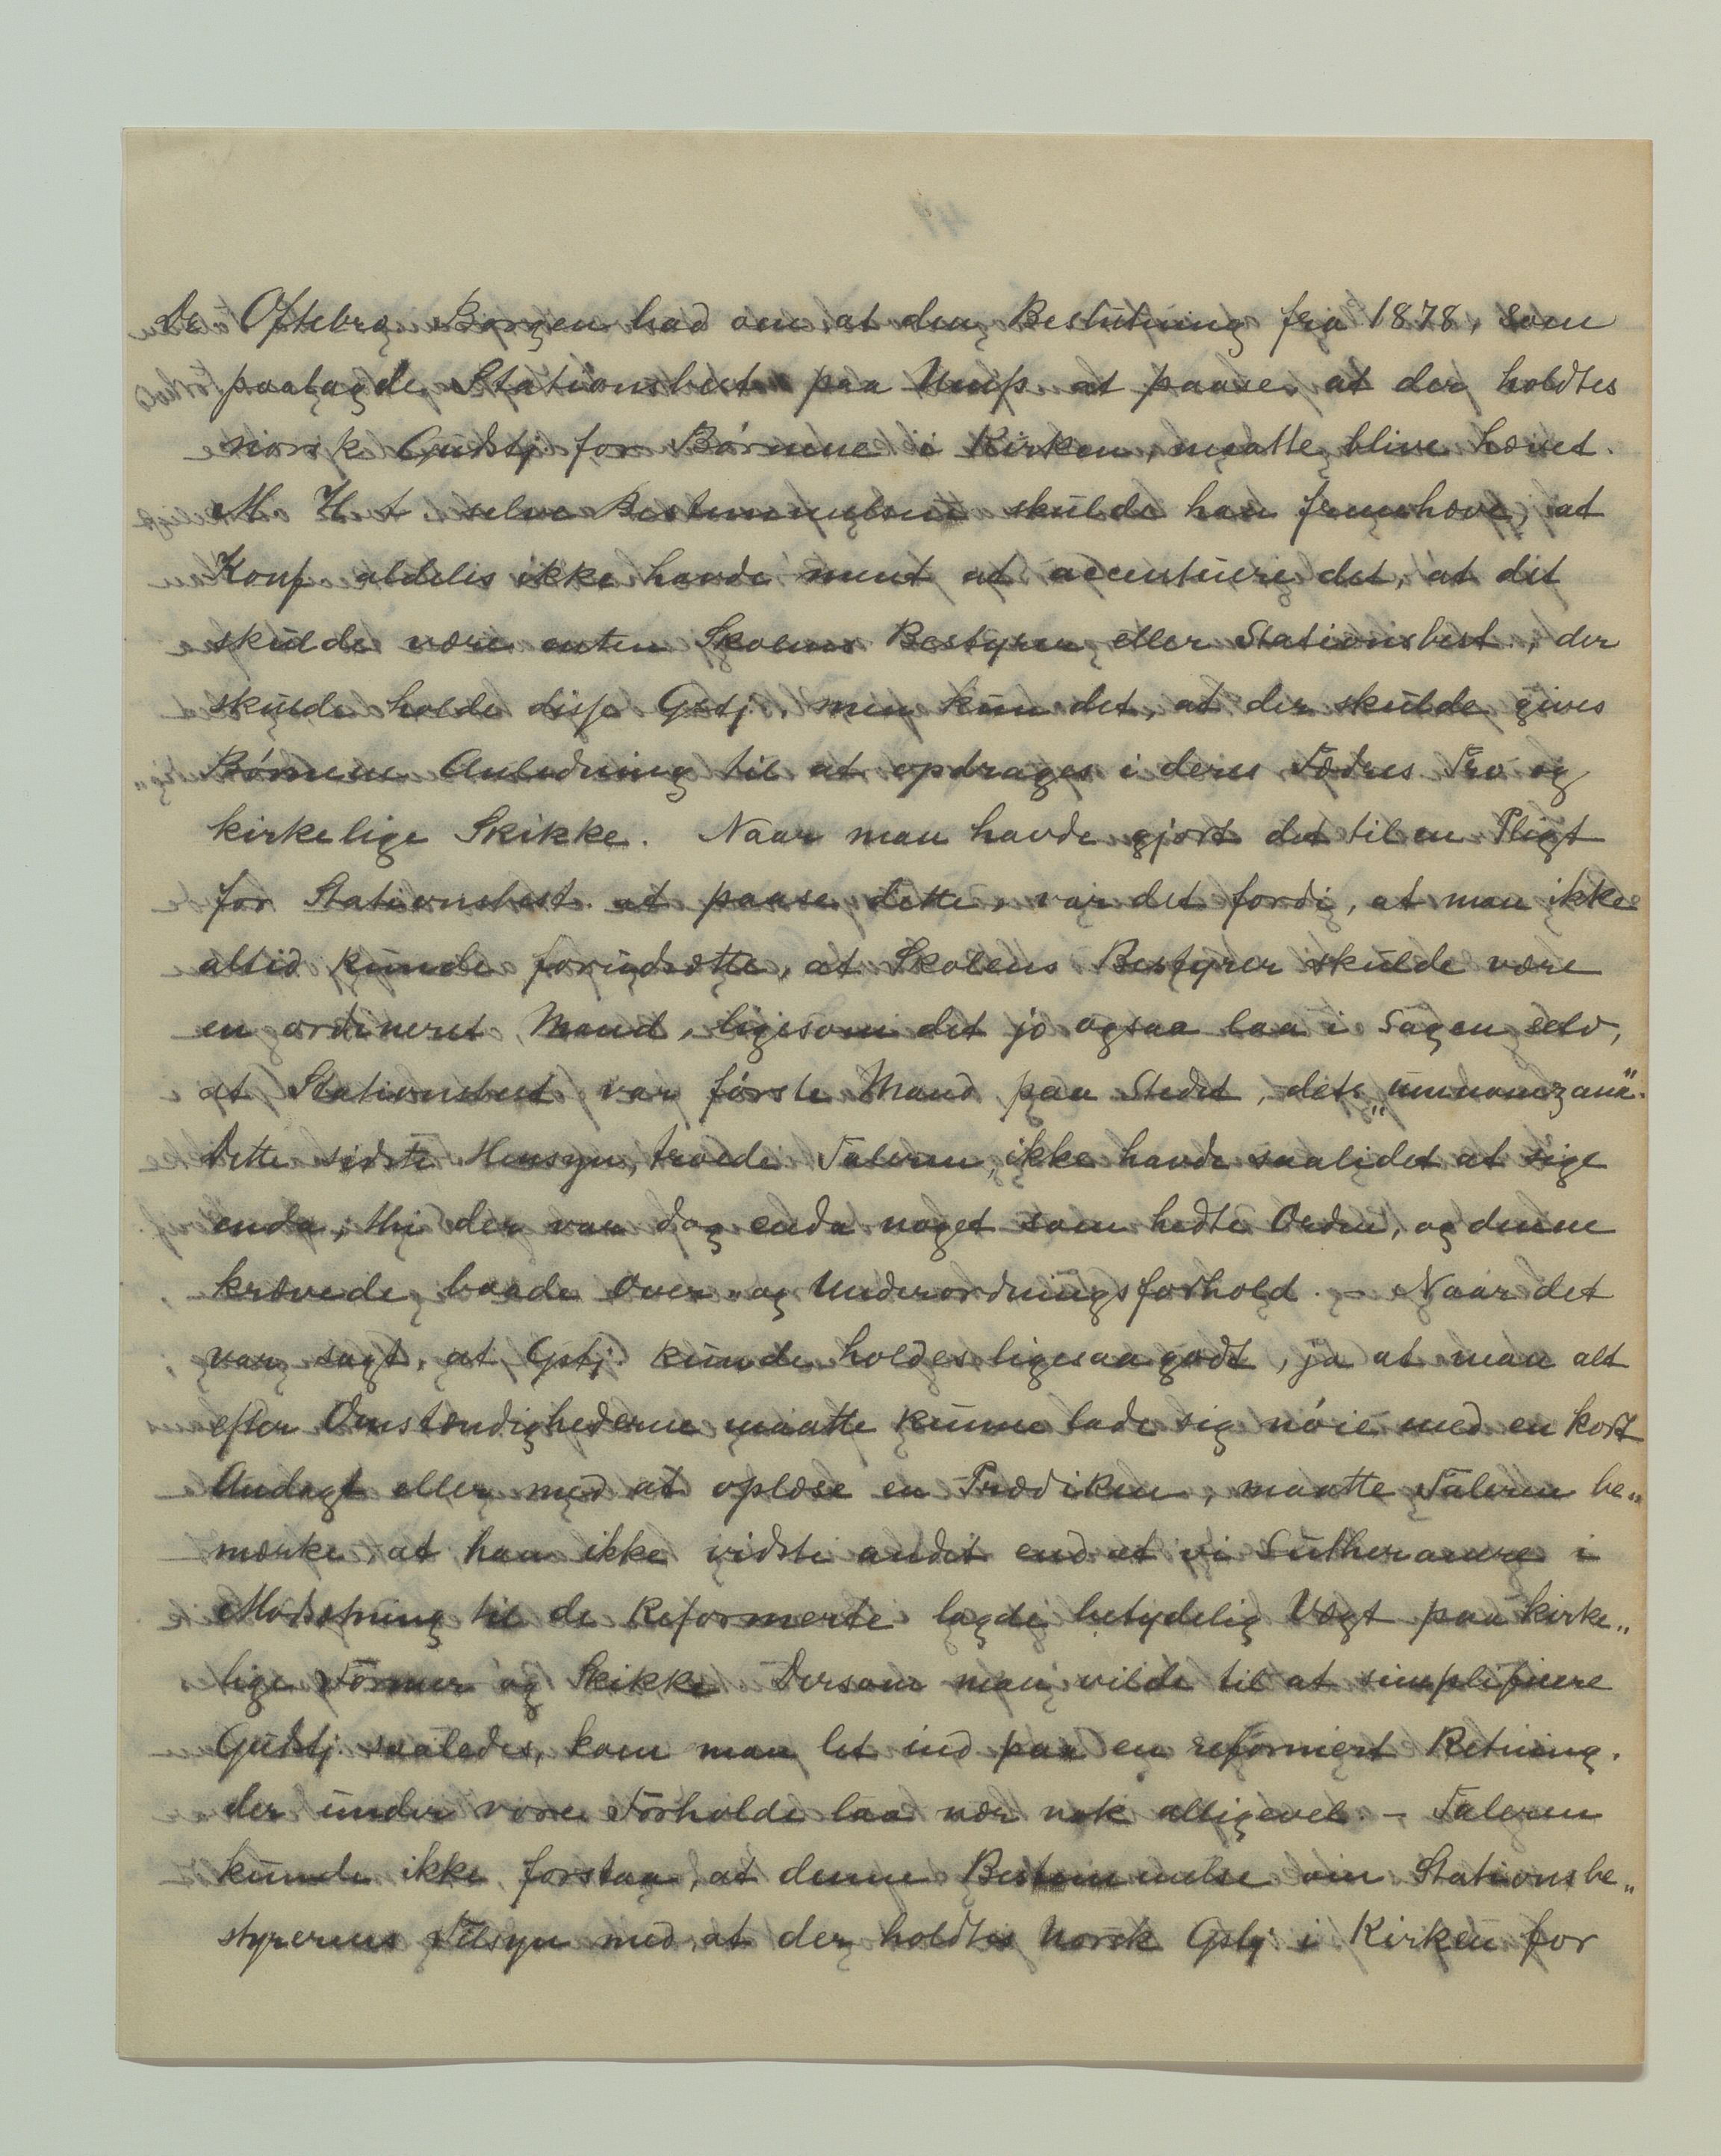 De Oftebro, Borgen bad om at den Beslutning fra 1878, som
paalagde Stationsbest. paa Ump. at paase, at der holdtes
norsk Gudstj. for Börnene i Kirken, maatte blive hævet.
M. H. t. selve Bestemmelsen skulde han fremhæve, at
Konf. aldeles ikke havde ment at accentuere det, at det
skulde være enten Skolens Bestyrer eller Stationsbest., der
skulde holde disse Gstj., men kun det, at der skulde gives
Börnene Anledning til at opdrages i deres Fædres Tro og
kirkelige Skikke. Naar man havde gjort det til en Pligt
for Stationsbest. at paase dette, var det fordi, at man ikke
altid kunde forudsætte, at Skolens Bestyrer skulde være
en ordineret Mand, ligesom det jo ogsaa laa i Sagen selv,
at Stationsbest. var förste Mand paa Stedet, dets „umnumzana".
Dette sidste Hensyn, troede Taleren, ikke havde saalidet at sige
enda, thi der var dog enda noget som hedte Orden, og denne
krævede baade Over- og Underordningsforhold. – Naar det
var sagt, at Gstj. kunde holdes ligesaa godt, ja at man alt
efter Omstændighederne maatte kunne lade sig nöie med en kort
Andagt eller med at oplæse en Prædiken, maatte Taleren be„
mærke, at han ikke vidste andet end at vi Lutheranere i
Modsætning til de Reformerte lagde betydelig Vægt paa kirke„
lige Former og Skikke. Dersom man vilde til at simplificere
Gudstj. saaledes, kom man let ind paa en reformert Retning,
der under vore Forholde laa nær nok alligevel. – Taleren
kunde ikke forstaa, at denne Bestemmelse om Stationsbe„
styrerens Tilsyn med, at der holdtes Norsk Gstj. i Kirken for